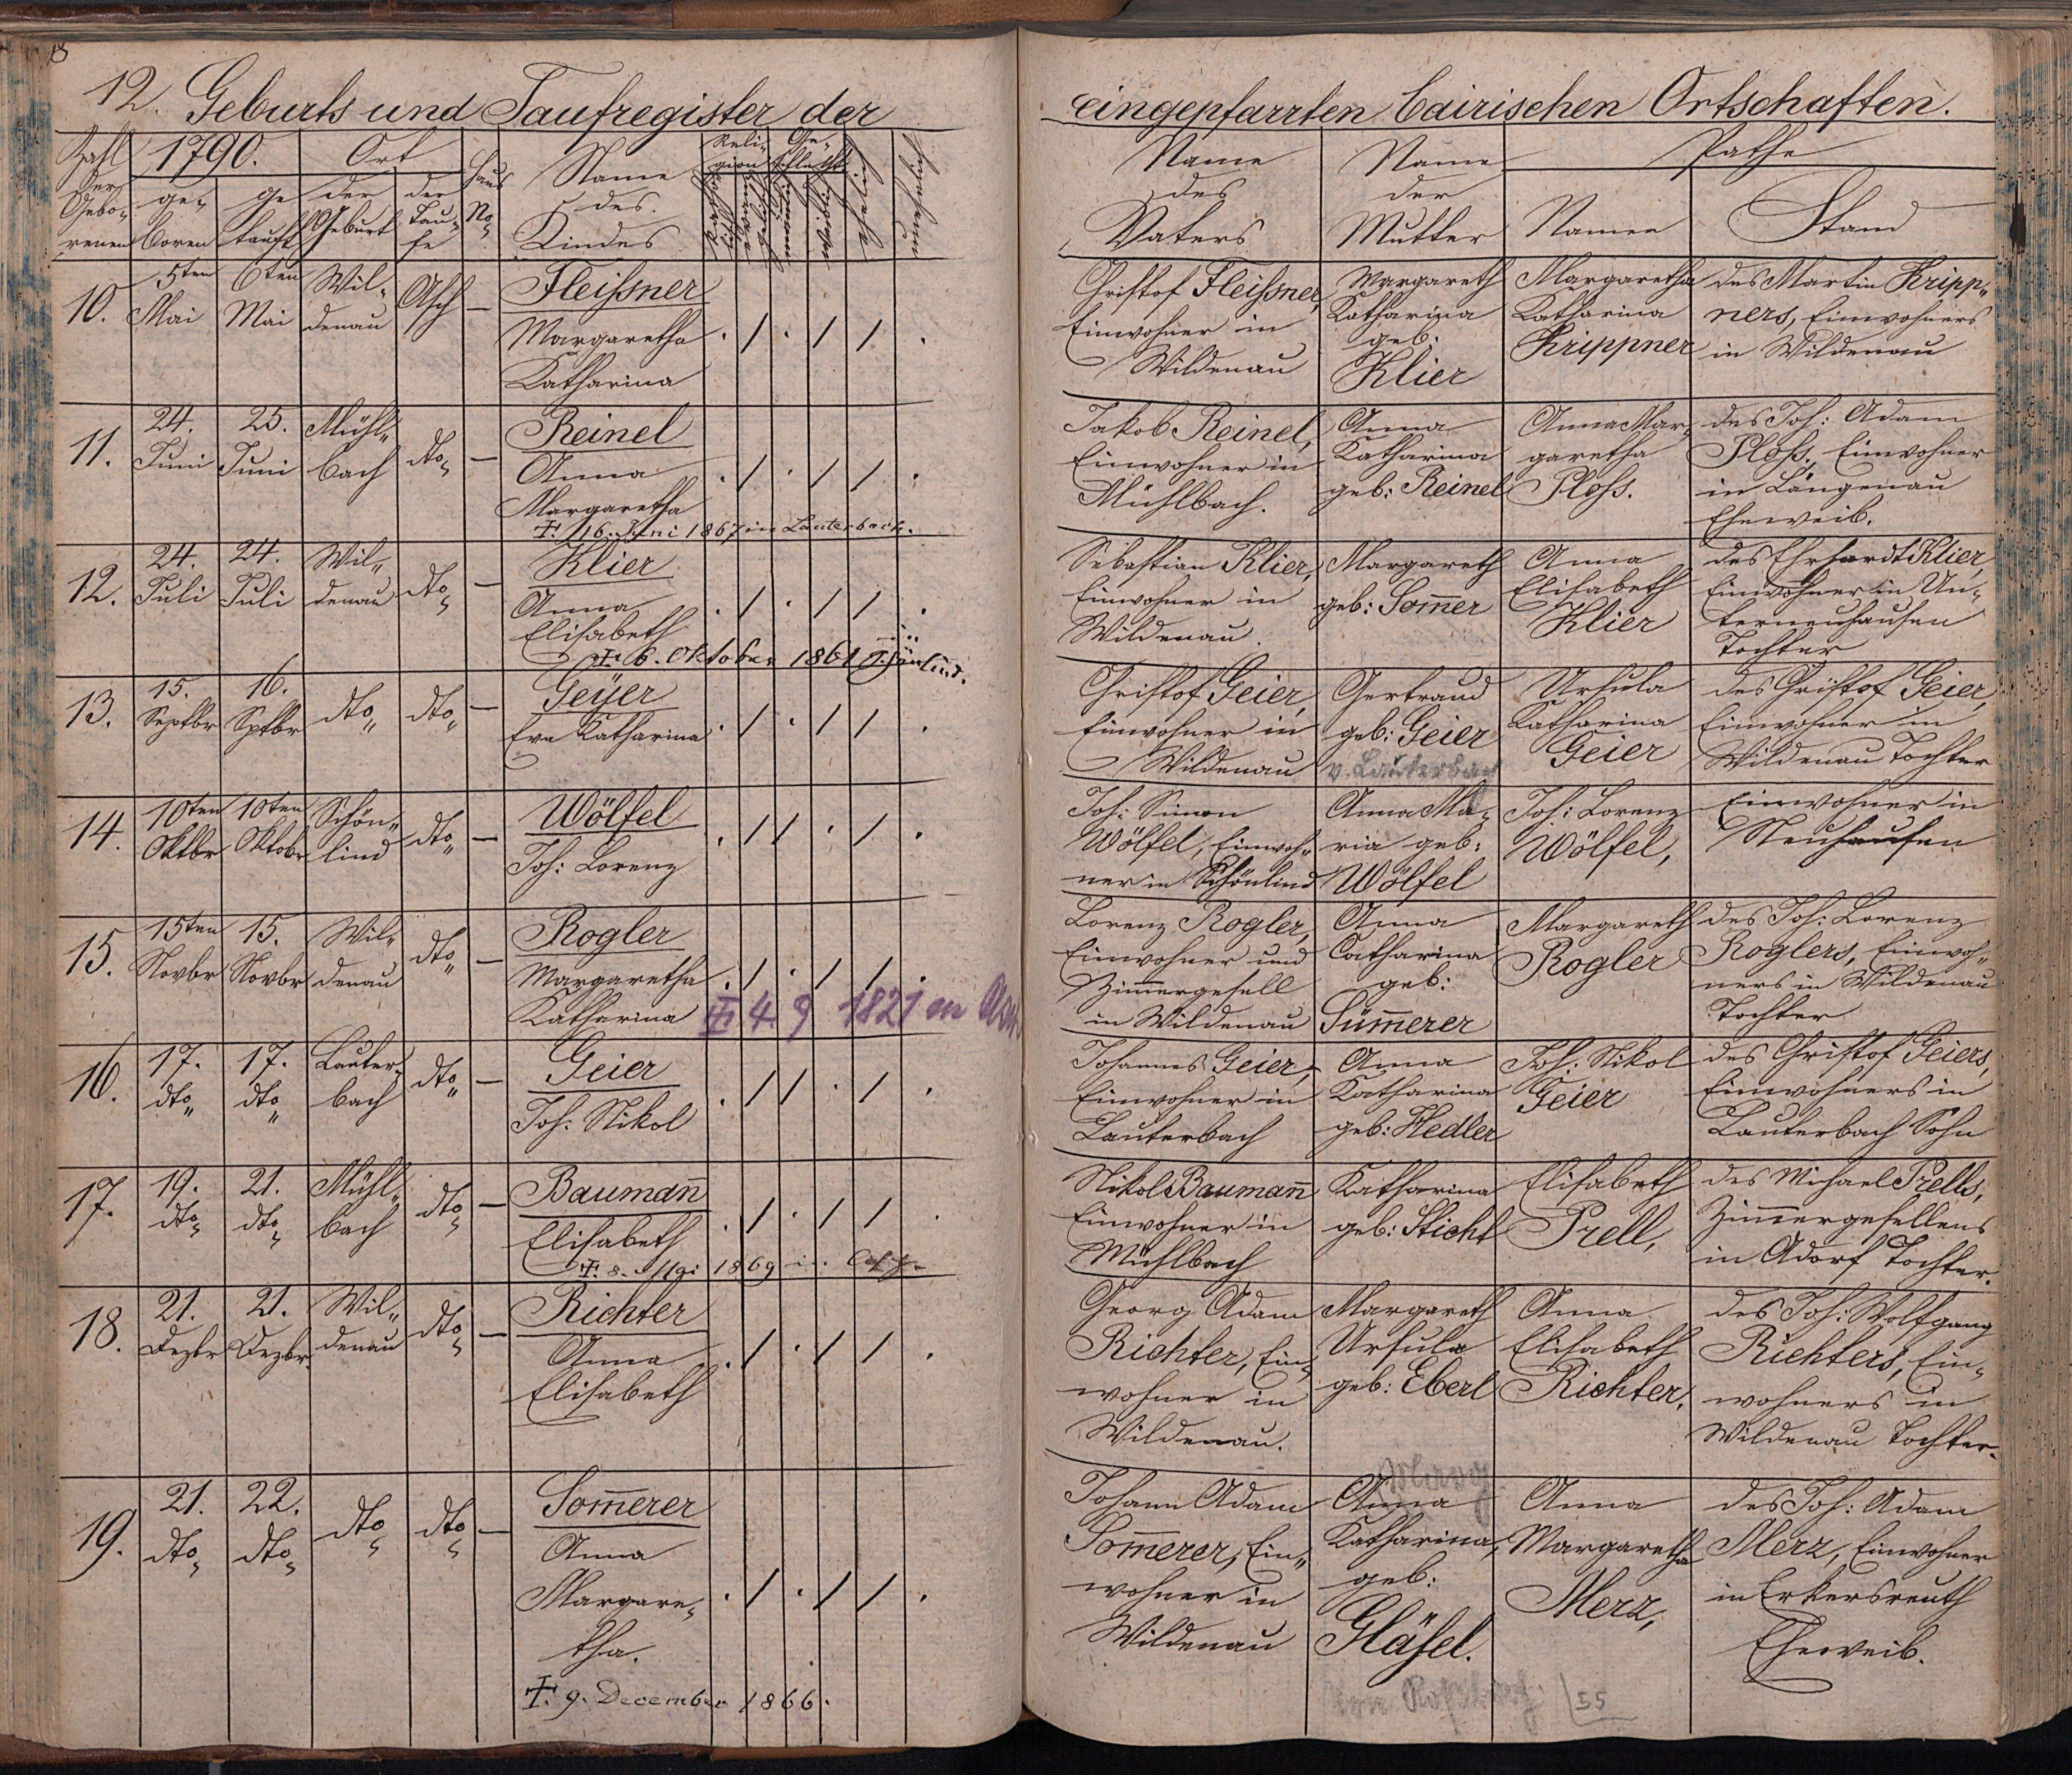 12. Geburts und Taufregister der eingepfarrten bairischen Ortschaften.
Zahl der Gebo-renen | 1790. | Ort | Haus No | Name des Kindes | Reli-gion | Ge-schlecht | ehelich | unehelich | Name des Vaters | Name der Mutter | Pathe
ge-boren | ge tauft | der Geburt | der Tau-fe | katholisch | evangelisch | männlich | weiblich | Namen | Stand
10. 5ten Mai | 6ten Mai | Wil-denau | Asch | —
Fleißner
Margaretha
Katharina
. / . / / .
Christof Fleißner,
Einwohner in
Wildenau
Margareth
Katharina
geb:
Klier
Margaretha
Katharina
Krippner
des Martin Kripp-
ners, Einwohners
in Wildenau
11. 24. Juni | 25. Juni | Mühl-bach | dto | —
Reinel
Anna
Margaretha
. / . / / .
†. 16. Juni 1867 in Lauterbach.
Jakob Reinel,
Einwohner in
Mühlbach.
Anna
Katharina
geb: Reinel
Anna Mar-
garetha
Ploß.
des Joh: Adam
Ploß, Einwohner
in Längenau
Eheweib.
12. 24. Juli | 24. Juli | Wil-denau | dto | —
Klier
Anna
Elisabeth
. / . / / .
†. 6. Oktober 1861 Schönlind.
Sebastian Klier,
Einwohner in
Wildenau.
Margareth
geb: Som̄er
Anna
Elisabeth
Klier
des Ehrhardt Klier,
Einwohner in Un-
terneuhausen
Tochter
13. 15. Septbr | 16. Sptbr | dto | dto | —
Geÿer
Eva Katharina
. / . / / .
Christof Geier,
Einwohner in
Wildenau
Gertraud
geb: Geier
v. Lauterbach
Ursula
Katharina
Geier
des Christof Geier,
Einwohner in
Wildenau Tochter
14. 10ten Oktbr | 10ten Oktobr | Schön-lind | dto | —
Wölfel
Joh: Lorenz
. / / . / .
Joh: Simon
Wölfel, Einwoh-
ner in Schönlind
Anna Ma-
ria geb:
Wölfel
Joh: Lorenz
Wölfel,
Einwohner in
Neuhausen
15. 15ten Novbr | 15. Novbr | Wil-denau | dto | —
Rogler
Margaretha
Katharina
. / . / / .
† 4. 9 1821 in Asch
Lorenz Rogler,
Einwohner und
Zimmergesell
in Wildenau
Anna
Catharina
geb:
Süm̄erer
Margareth
Rogler
des Joh: Lorenz
Roglers, Einwoh-
ners in Wildenau
Tochter
16. 17. dto | 17. dto | Lauter-bach | dto | —
Geier
Joh: Nikol
. / / . / .
Johannes Geier,
Einwohner in
Lauterbach
Anna
Katharina
geb: Hedler
Joh: Nikol
Geier
des Christof Geiers,
Einwohners in
Lauterbach Sohn
17. 19. dto | 21. dto | Mühl-bach | dto | —
Bauman̄
Elisabeth
. / . / / .
†. 8. Mai 1869 in Asch.
Nikol Bauman̄
Einwohner in
Mühlbach
Katharina
geb: Sticht
Elisabeth
Prell,
des Michael Prells,
Zimmergesellens
in Adorf Tochter.
18. 21. Dezbr | 21. Dezbr. | Wil-denau | dto | —
Richter
Anna
Elisabeth
. / . / / .
Georg Adam
Richter, Ein-
wohner in
Wildenau.
Margareth
Ursula
geb: Eberl
Anna
Elisabeth
Richter,
des Joh: Wolfgang
Richters, Ein-
wohners in
Wildenau Tochter.
19. 21. dto | 22. dto | dto | dto | —
Som̄erer
Anna
Margare-
tha.
. / . / / .
†. 9. December 1866.
Johann Adam
Som̄erer, Ein-
wohner in
Wildenau
Anna
Katharina,
geb:
Gläsel.
Anna
Margaretha
Merz,
des Joh: Adam
Merz, Einwohner
in Erkersreuth
Eheweib.
55